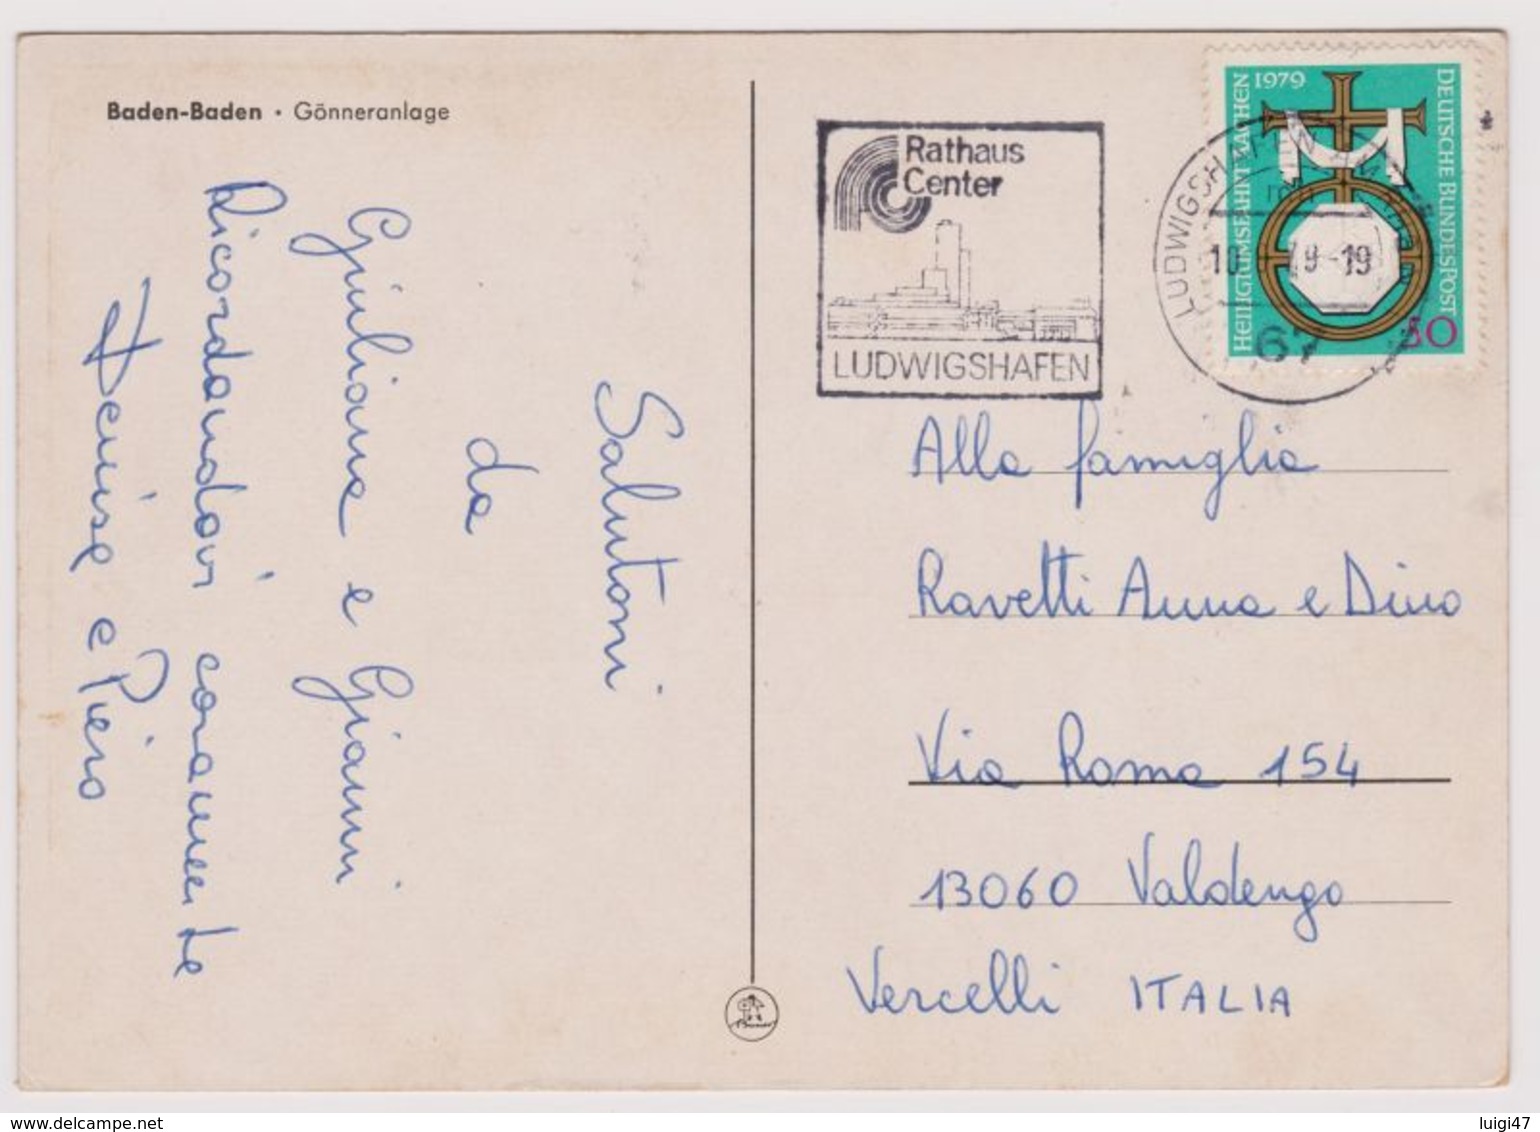 Baden-Baden • Gönneranlage
Salutoni
da
Giuliana e Gianni
Ricordandovi caramente
Denise e Piero
Rathaus
Center
LUDWIGSHAFEN
LUDWIGSHAFEN AM
67
1979
HEILIGTUMSFAHRT AACHEN
DEUTSCHE BUNDESPOST
50
Alla famiglia
Ravetti Anna e Dino
Via Roma 154
13060 Valdengo
Vercelli ITALIA
www.delcampe.net
luigi47